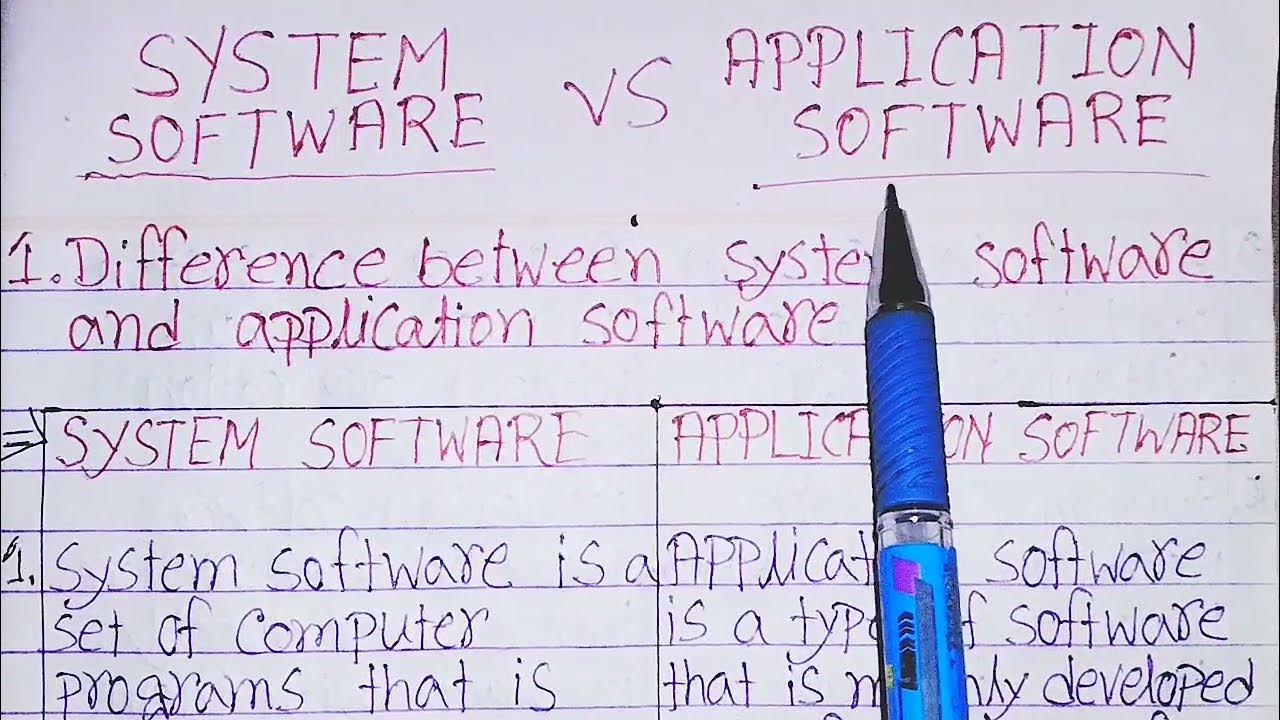 SYSTEM
SOFTWARE
VS
APPLICATION
SOFTWARE
1. Difference between software
and application software
⇒ SYSTEM SOFTWARE
SOFTWARE
1. System software is a
set of computer
programs that is
software
is a of software
that is developed